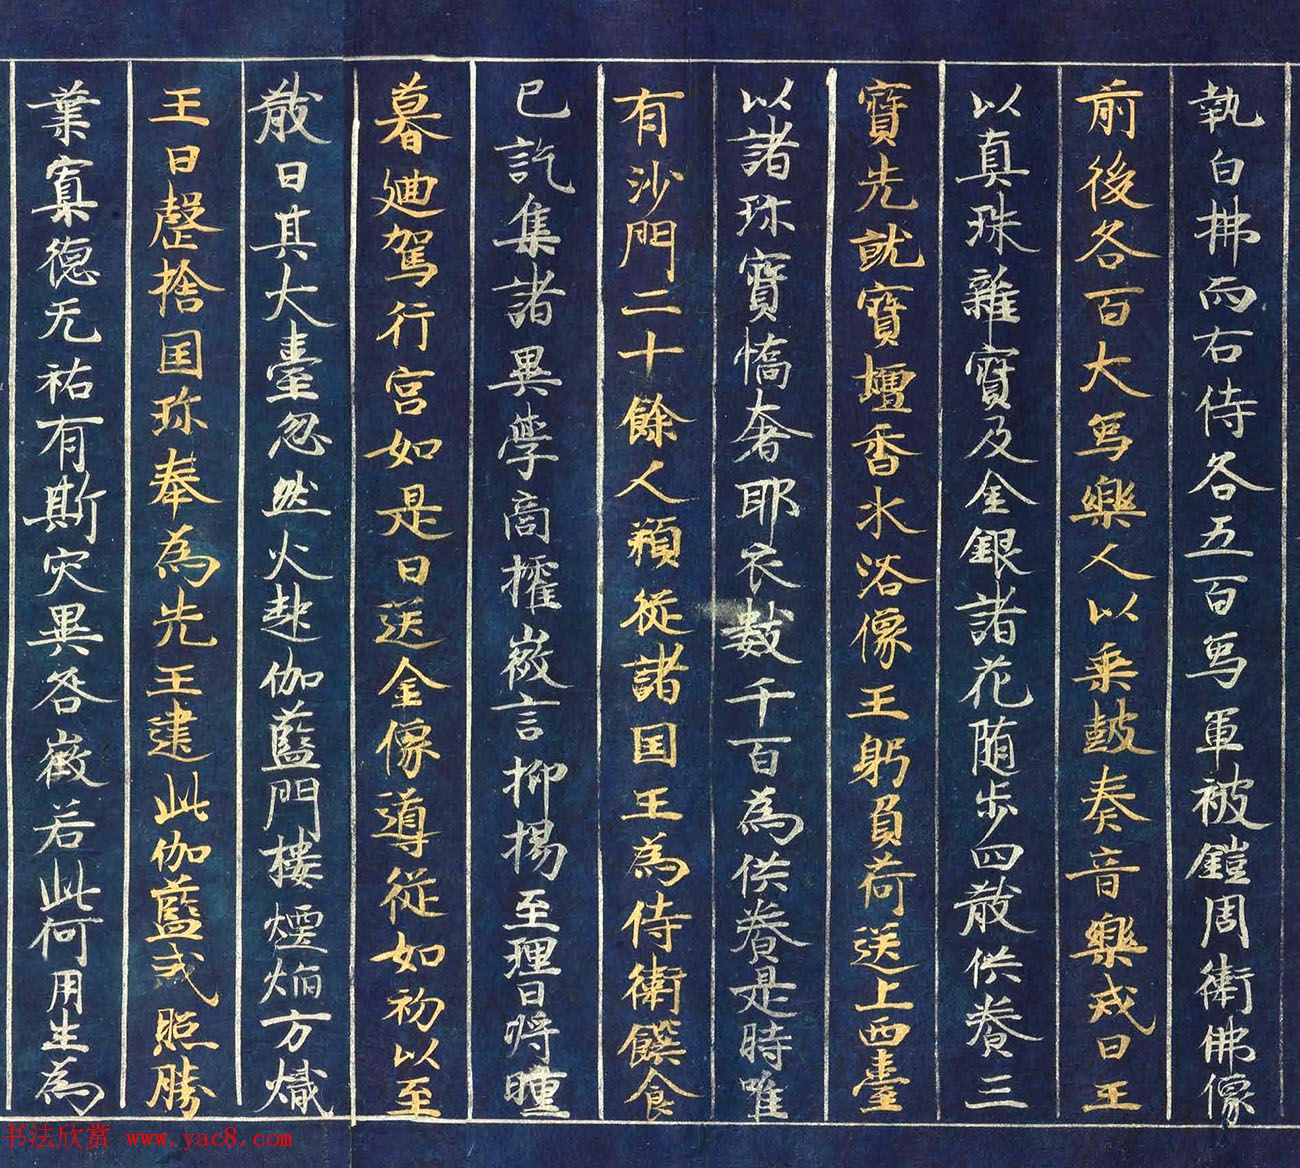 執白拂而右侍各五百象軍被鎧周衛佛像
前後各百大象樂人以乘鼓奏音樂戒日王
以真珠雜寶及金銀諸花随步四散供養三
寶先就寶壇香水浴像王躬負荷送上西臺
以諸珎寶憍奢耶衣數千百為供養是時唯
有沙門二十餘人預從諸国王為侍衛饌食
已訖集諸異學商搉微言抑揚至理日將曛
暮廻駕行宮如是日送金像導從如初以至
散日其大臺忽然火起伽藍門樓煙焰方熾
王曰罄捨国珎奉為先王建此伽藍式照勝
葉寡德无祐有斯灾異咎徵若此何用生為
书法欣赏 www.yac8.com